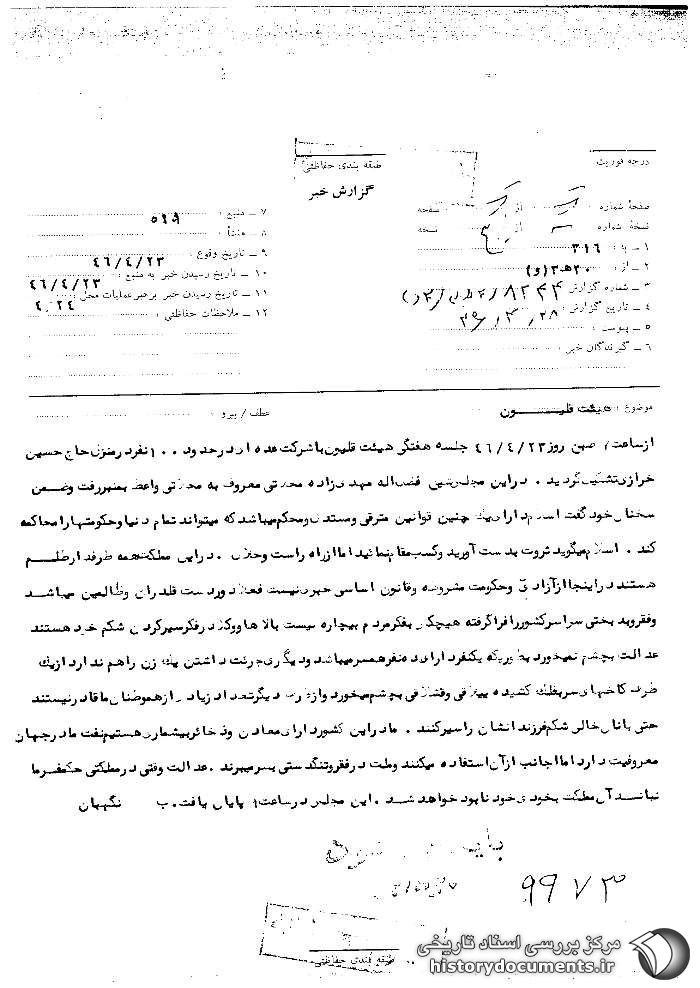 درجه فوریت
طبقه بندی حفاظتی
گزارش خبر
صفحهٔ شماره : از : صفحه
نسخهٔ شماره : از نسخه
۱ ـ به : ۳۱۶
۲ ـ از : ۲۰ ه‍ ۳ (و)
۳ ـ شماره گزارش
۴ ـ تاریخ گزارش :
۵ ـ پیوست :
۶ ـ گیرندگان خبر :
۷ ـ منبع : ۵۴۹
۸ ـ منشأ :
۹ ـ تاریخ وقوع : ۴۶/۴/۲۳
۱۰ ـ تاریخ رسیدن خبر به منبع : ۴۶/۴/۲۳
۱۱ ـ تاریخ رسیدن خبر برهبر عملیات محل : ۴/۲۴
۱۲ ـ ملاحظات حفاظتی :
موضوع : هیئت قلیون
عطف / پیرو :
از ساعت ۷ صبح روز ۴۶/۴/۲۳ جلسه هفتگی هیئت قلیون با شرکت عده ای در حدود ۱۰۰ نفر در منزل حاج حسین
خرازی تشکیل گردید . در این مجلس شیخ فضل اله مهدی زاده محلاتی معروف به محلاتی واعظ بمنبر رفت و ضمن
سخنان خود گفت اسلام دارای یک چنین قوانین مترقی و مستدل و محکم میباشد که میتواند تمام دنیا و حکومتها را محاکمه
کند . اسلام میگوید ثروت بدست آورید و کسب مقام نمائید اما از راه راست و حلال . در این مملکت همه طرفدار ظلم
هستند در اینجا از آزادی و حکومت مشروطه و قانون اساسی خبری نیست فعلا در دست قلدران و ظالمین میباشد
و فقر و بدبختی سراسر کشور را فرا گرفته هیچکس بفکر مردم بیچاره نیست بالاها و وکلا در فکر سیر کردن شکم خود هستند
عدالت بچشم نمیخورد بطوریکه یکنفر دارای ده نفر همسر میباشد و دیگری جرئت داشتن یک زن را هم ندارد از یک
طرف کاخهای سر بفلک کشیده ییلاقی و قشلاقی بچشم میخورد و از طرف دیگر تعداد زیادی از هموطنان ما قادر نیستند
حتی با نان خالی شکم فرزندانشان را سیر کنند . ما در این کشور دارای معادن و ذخائر بیشماری هستیم نفت ما در جهان
معروفیت دارد اما اجانب از آن استفاده میکنند و ملت در فقر و تنگدستی بسر میبرند . عدالت وقتی در مملکتی حکمفرما
نباشد آن مملکت بخودی خود نابود خواهد شد . این مجلس در ساعت ۹ پایان یافت. ب نگهبان
۹۹۷۳
طبقه بندی حفاظتی
مرکز بررسی اسناد تاریخی
historydocuments.ir